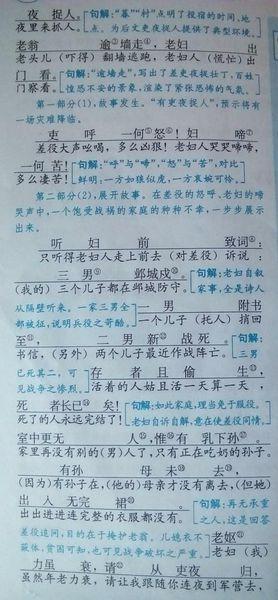 夜 捉人。 句解:“暮”“村”点明了投宿的时间、地
夜里来抓人。 点,为后文更夜捉人提供了典型环境。
老翁 逾墙走,老妇 出
老头儿(吓得)翻墙逃跑,老妇人(慌忙)出
门 看。 句解:“逾墙走”,写出了差吏夜捉壮丁,百姓
门察看。 惶恐不安的景象,渲染了紧张恐怖的气氛。
第一部分(1),故事发生。“有吏夜捉人”,预示将有
一场灾难降临。
吏 呼 一何⑤怒!妇 啼
差役大声吆喝,多么凶狠!老妇人哭哭啼啼,
一何 苦! 句解:“呼”与“啼”,“怒”与“苦”,对比
多么凄苦! 鲜明,一方如狼似虎,一方哀婉可怜。
第二部分(2),展开故事。在差役的怒呼、老妇的啼
哭声中,一个饱受战祸的家庭的种种不幸,一步步展示
出来。
听 妇 前 致词:
只听得老妇人走上前去(对差役)诉说:
三 男 邺城戍。 句解:老妇自叙
(我的)三个儿子都在邺城防守。 家事,全是诗人
从隔壁听来。一家三男全 一 男 附书
部被征,说明兵役之苛酷。 一个儿子(托人)捎回
至, 二 男新 战死。 句解:
书信,(另外)两个儿子最近作战阵亡。 三男
已死其二,可 存 者 且 偷 生,
见战争之惨烈。 活着的人姑且活一天算一天,
死 者长已 矣! 句解:如此家庭,理当免于服役。
死了的人永远完结了! 老妇自诉自解,意在使差役同情,
室中更无 人,惟有 乳下孙。
家里再没有别的(男)人了,只有正在吃奶的孙子。
有孙 母 未 去,
(因为)有孙子在,(他的)母亲才没有离去,(但她)
出 入 无完 裙。 句解:再无承应
出出进进连完整的衣服都没有。 之人,这是回答
差役追问,目的在于掩护老翁。儿媳衣不 老妪
蔽体,贫困可知,也可见战争破坏之严重。 老妇(我)
力虽 衰,请 从 吏夜 归,
虽然年老力衰,请让我跟随你连夜到军营去,